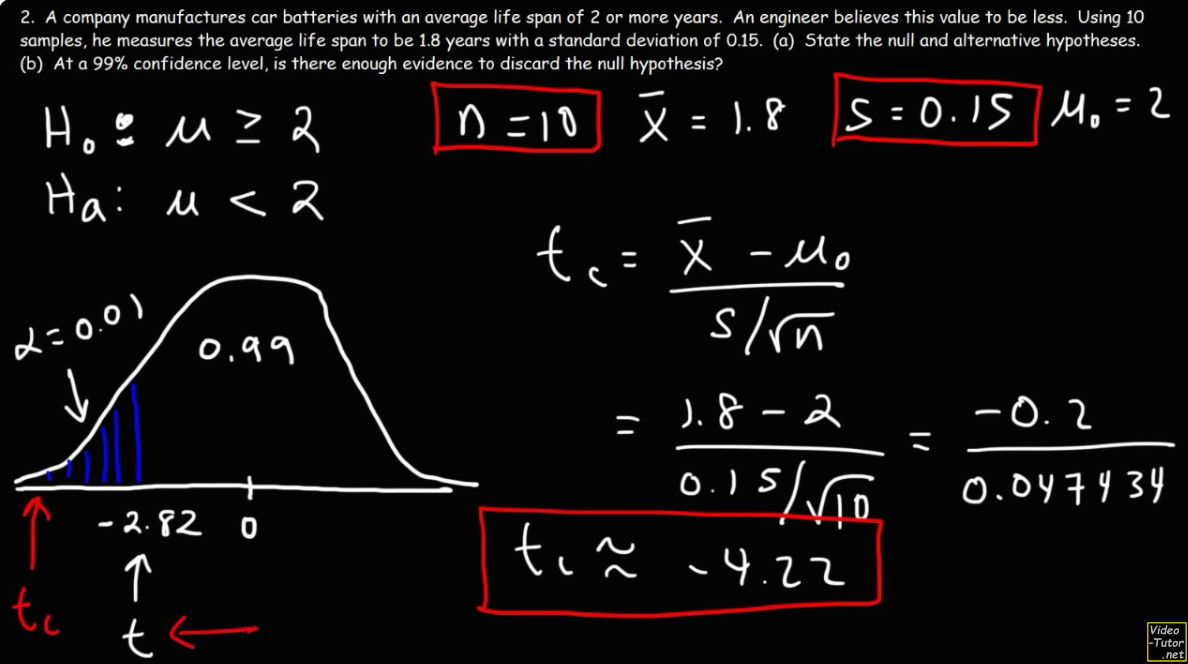 2. A company manufactures car batteries with an average life span of 2 or more years. An engineer believes this value to be less. Using 10
samples, he measures the average life span to be 1.8 years with a standard deviation of 0.15. (a) State the null and alternative hypotheses.
(b) At a 99% confidence level, is there enough evidence to discard the null hypothesis?
H₀: μ ≥ 2
n = 10
x̄ = 1.8
s = 0.15
μ₀ = 2
Ha: μ < 2
t_c = (x̄ - μ₀) / (s/√n)
α = 0.01
0.99
= (1.8 - 2) / (0.15/√10) = -0.2 / 0.047434
-2.82 0
t_c ≈ -4.22
t_c
t
Video
-Tutor
.net